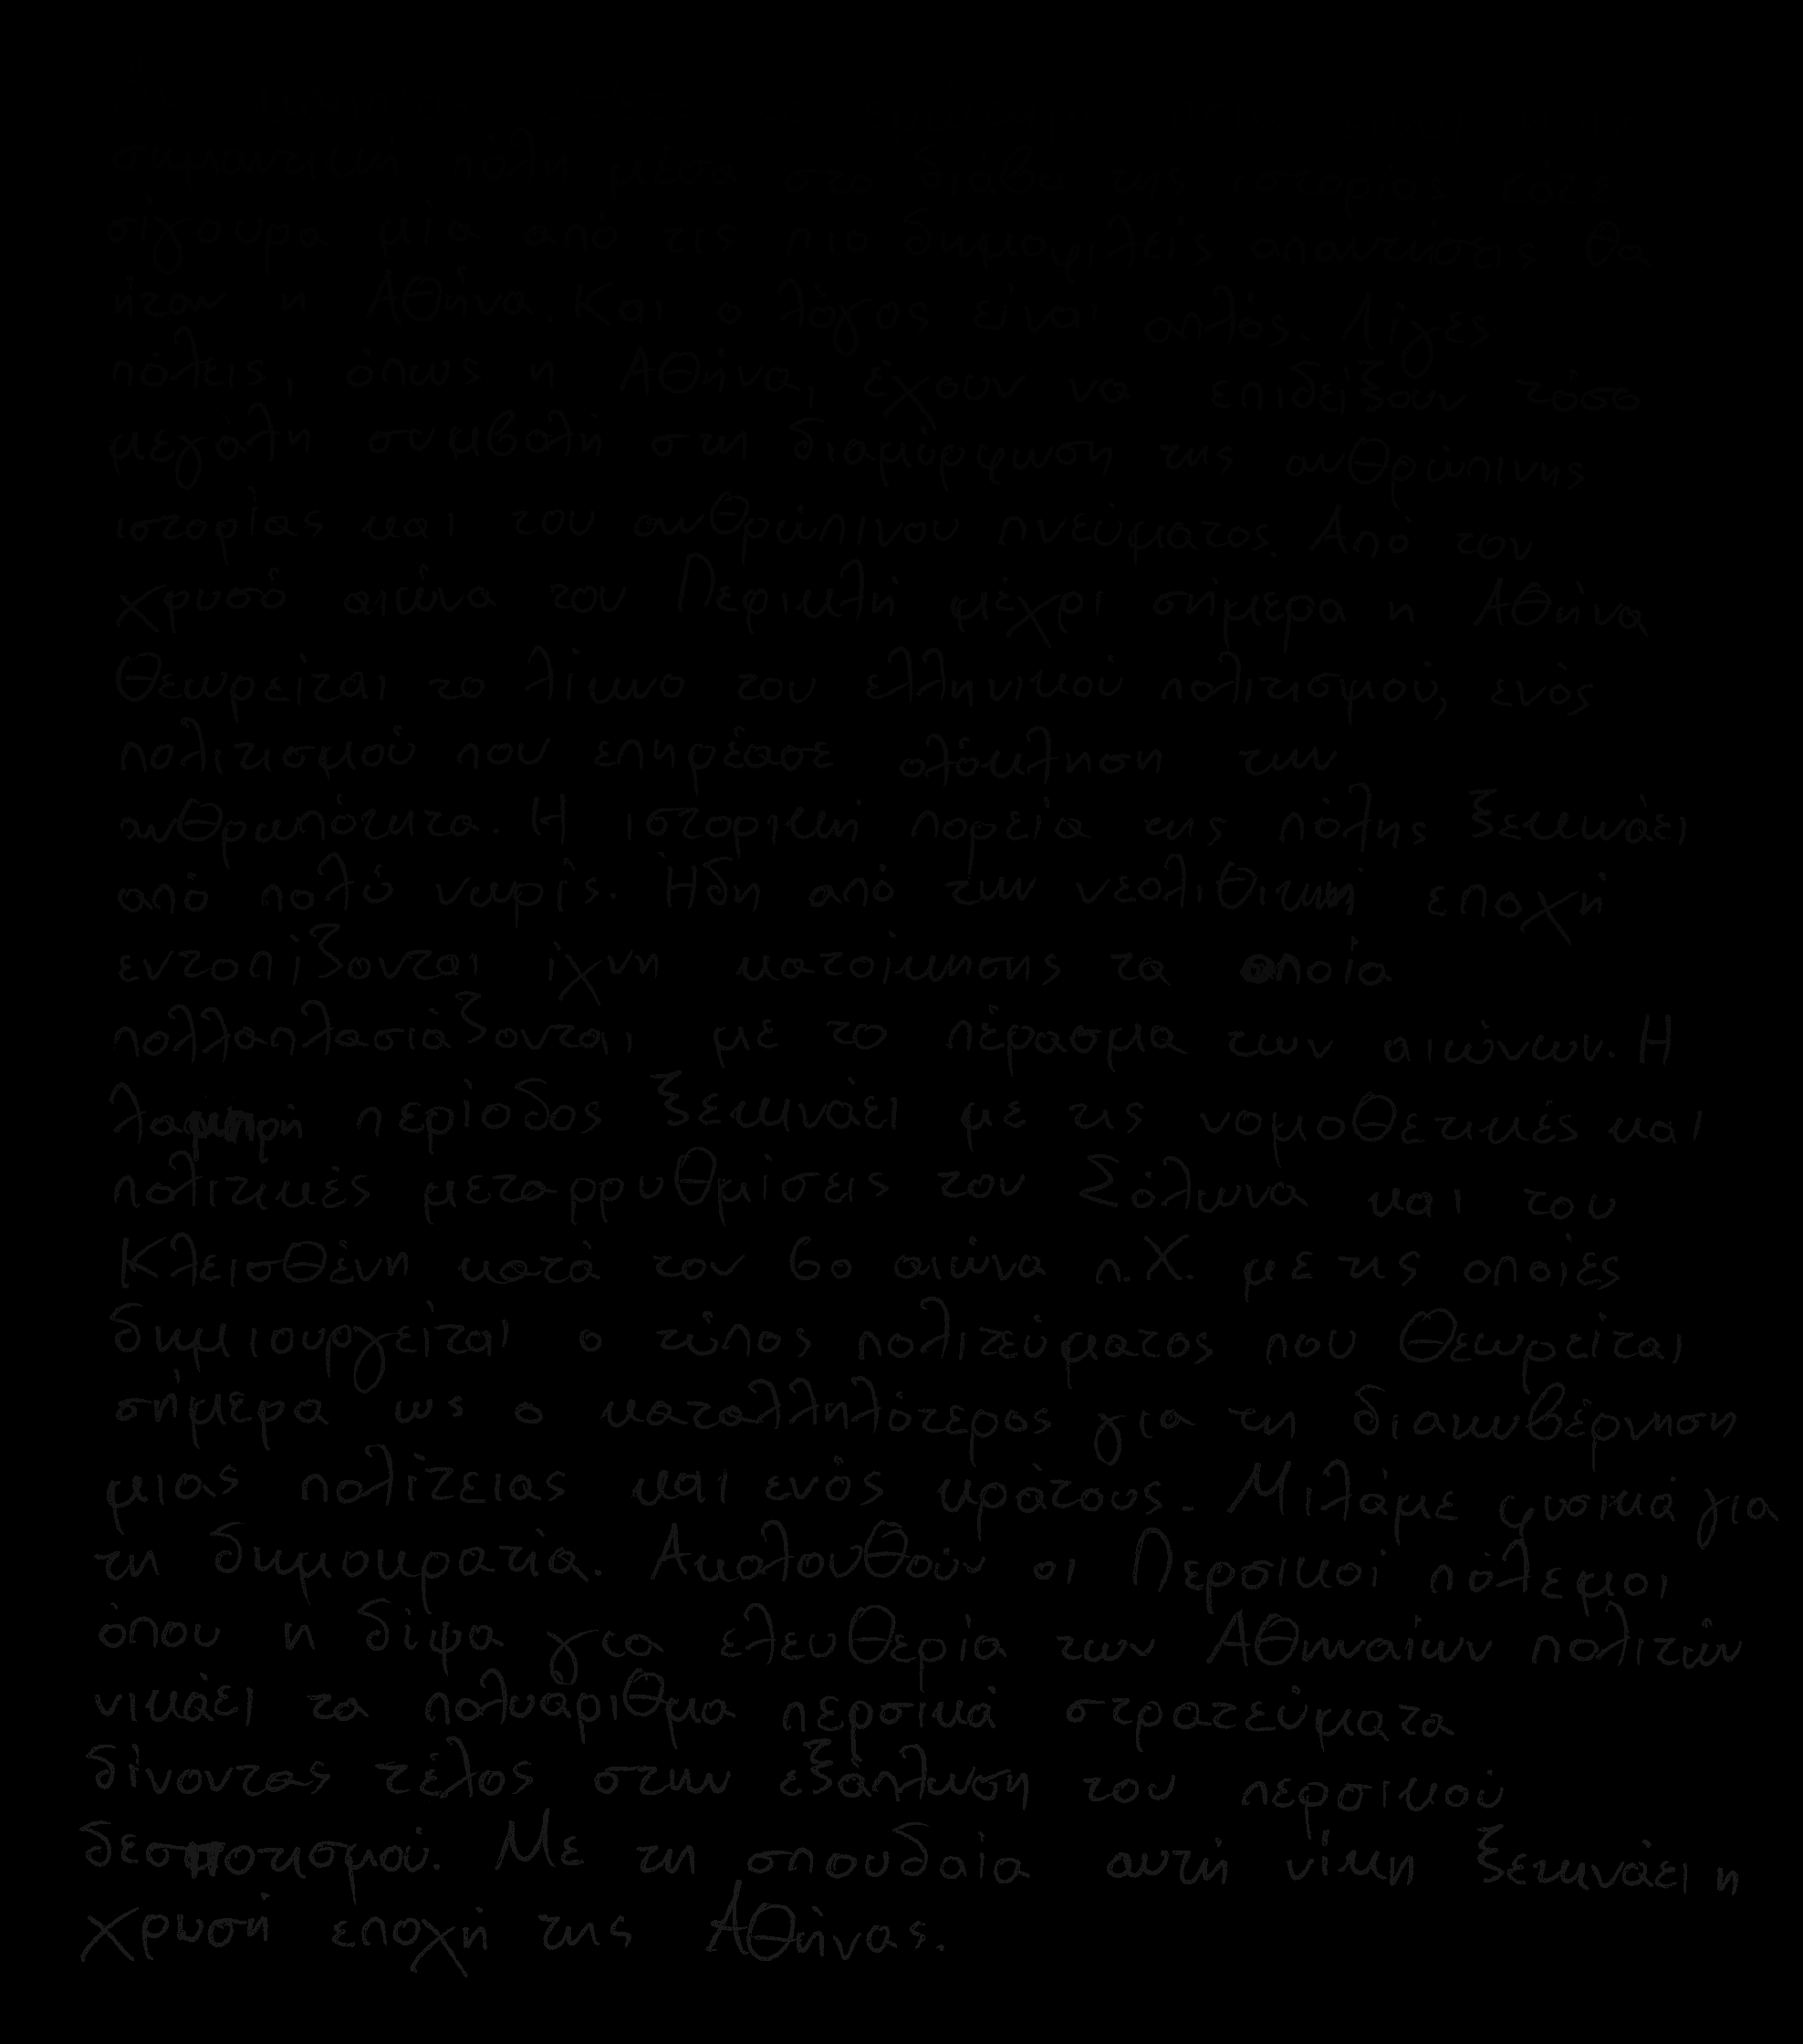 σημαντική πόλη μέσα στο διάβα της ιστορίας τότε
σίγουρα μία από τις πιο δημοφιλείς απαντήσεις θα
ήταν η Αθήνα. Και ο λόγος είναι απλός. Λίγες
πόλεις, όπως η Αθήνα, έχουν να επιδείξουν τόσο
μεγάλη συμβολή στη διαμόρφωση της ανθρώπινης
ιστορίας και του ανθρώπινου πνεύματος. Από τον
χρυσό αιώνα του Περικλή μέχρι σήμερα η Αθήνα
θεωρείται το λίκνο του ελληνικού πολιτισμού, ενός
πολιτισμού που επηρέασε ολόκληση την
ανθρωπότητα. Η ιστορική πορεία της πόλης ξεκινάει
από πολύ νωρίς. Ήδη από την νεολιθική εποχή
εντοπίζονται ίχνη κατοίκησης τα οποία
πολλαπλασιάζονται με το πέρασμα των αιώνων. Η
λαμπρή περίοδος ξεκινάει με τις νομοθετικές και
πολιτικές μεταρρυθμίσεις του Σόλωνα και του
Κλεισθένη κατά τον 6ο αιώνα π.Χ. με τις οποίες
δημιουργείται ο τύπος πολιτεύματος που θεωρείται
σήμερα ως ο καταλληλότερος για τη διακυβέρνηση
μιας πολίτειας και ενός κράτους. Μιλάμε φυσικά για
τη δημοκρατία. Ακολουθούν οι Περσικοί πόλεμοι
όπου η δίψα για ελευθερία των Αθηναίων πολιτών
νικάει τα πολυάριθμα περσικά στρατεύματα
δίνοντας τέλος στην εξάπλωση του περσικού
δεσποτισμού. Με τη σπουδαία αυτή νίκη ξεκινάει η
χρυσή εποχή της Αθήνας.